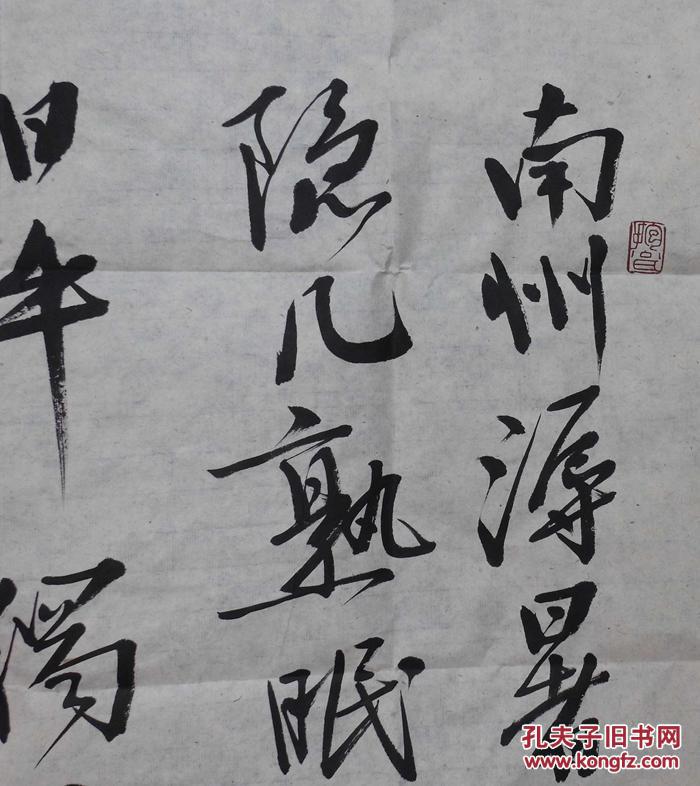 南州溽暑
隐几熟眠
日午獨
孔夫子旧书网
www.kongfz.com